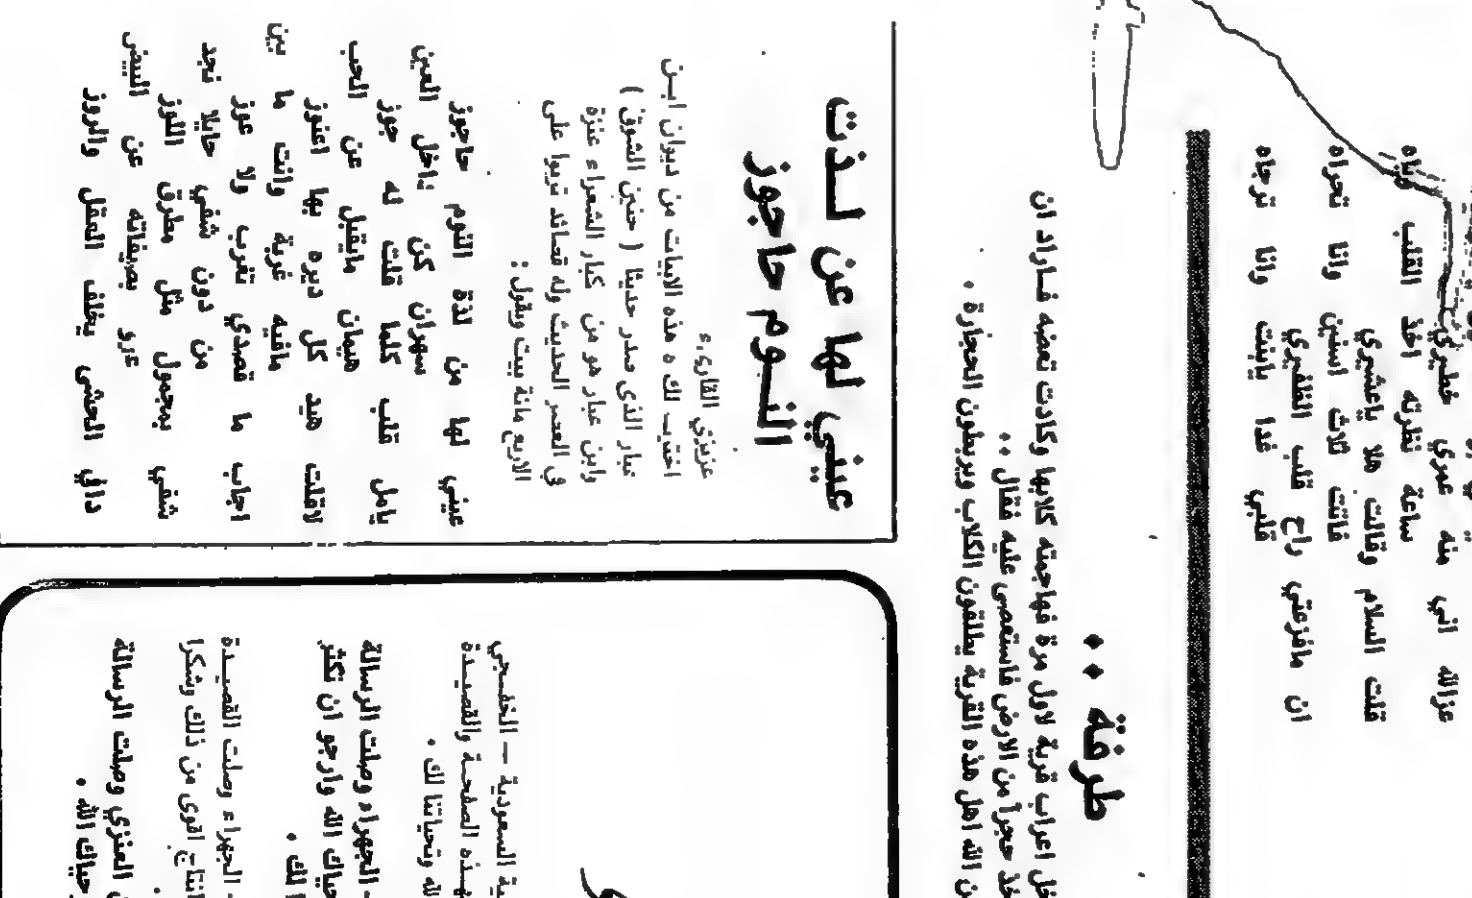 عزالله اني منه عمري خطيري
ساعة نظرته اخذ القلب وياه
قلت السلام وقالت هلا ياعشيري
فاتت ثلاث اسنين وانا تحراه
ان مافزعتي راح قلب الظفيري
قلبي غدا يابنت وانا ترجاه
طرفة ..
خل اعراب قرية لاول مرة فهاجمته كلابها وكادت تعضه فاراد ان
خذ حجرا من الارض فاستعصى عليه فقال ..
ن الله اهل هذه القرية يطلقون الكلاب ويربطون الحجارة .
عيني لها عن لذت
النوم حاجوز
عزيزي القارىء
اخترت لك هذه الابيات من ديوان ابن
عبار الذي صدر حديثا ( حنين الشوق )
وابن عبار هو من كبار الشعراء عنزة
في العصر الحديث وله قصائد تربوا على
الاربع مائة بيت ويقول :
عيني لها من لذة النوم حاجوز
سهران كن داخل العين
يامل قلب كلما قلت له جوز
هيمان مايقبل عن الحب
لاقلت هيد كل ديره بها اعنوز
مافيه غربة وانت ما بين
اجاب ما قصدي تغرب ولا عوز
من دون شفي حايلا نجد
شفي بمجمول مثل مطرق اللوز
عرو بصيفاته عن البيض
دافي الحشى يخلف العقل والروز
ية السعودية - الخفجي
هذه الصفحة والقصيدة
لله وتحياتنا لك .
الجهراء وصلت الرسالة
حياك الله وارجو ان تكثر
لك .
الجهراء وصلت القصيدة
انتاج اقوى من ذلك وشكرا
العنزي وصلت الرسالة
حياك الله .